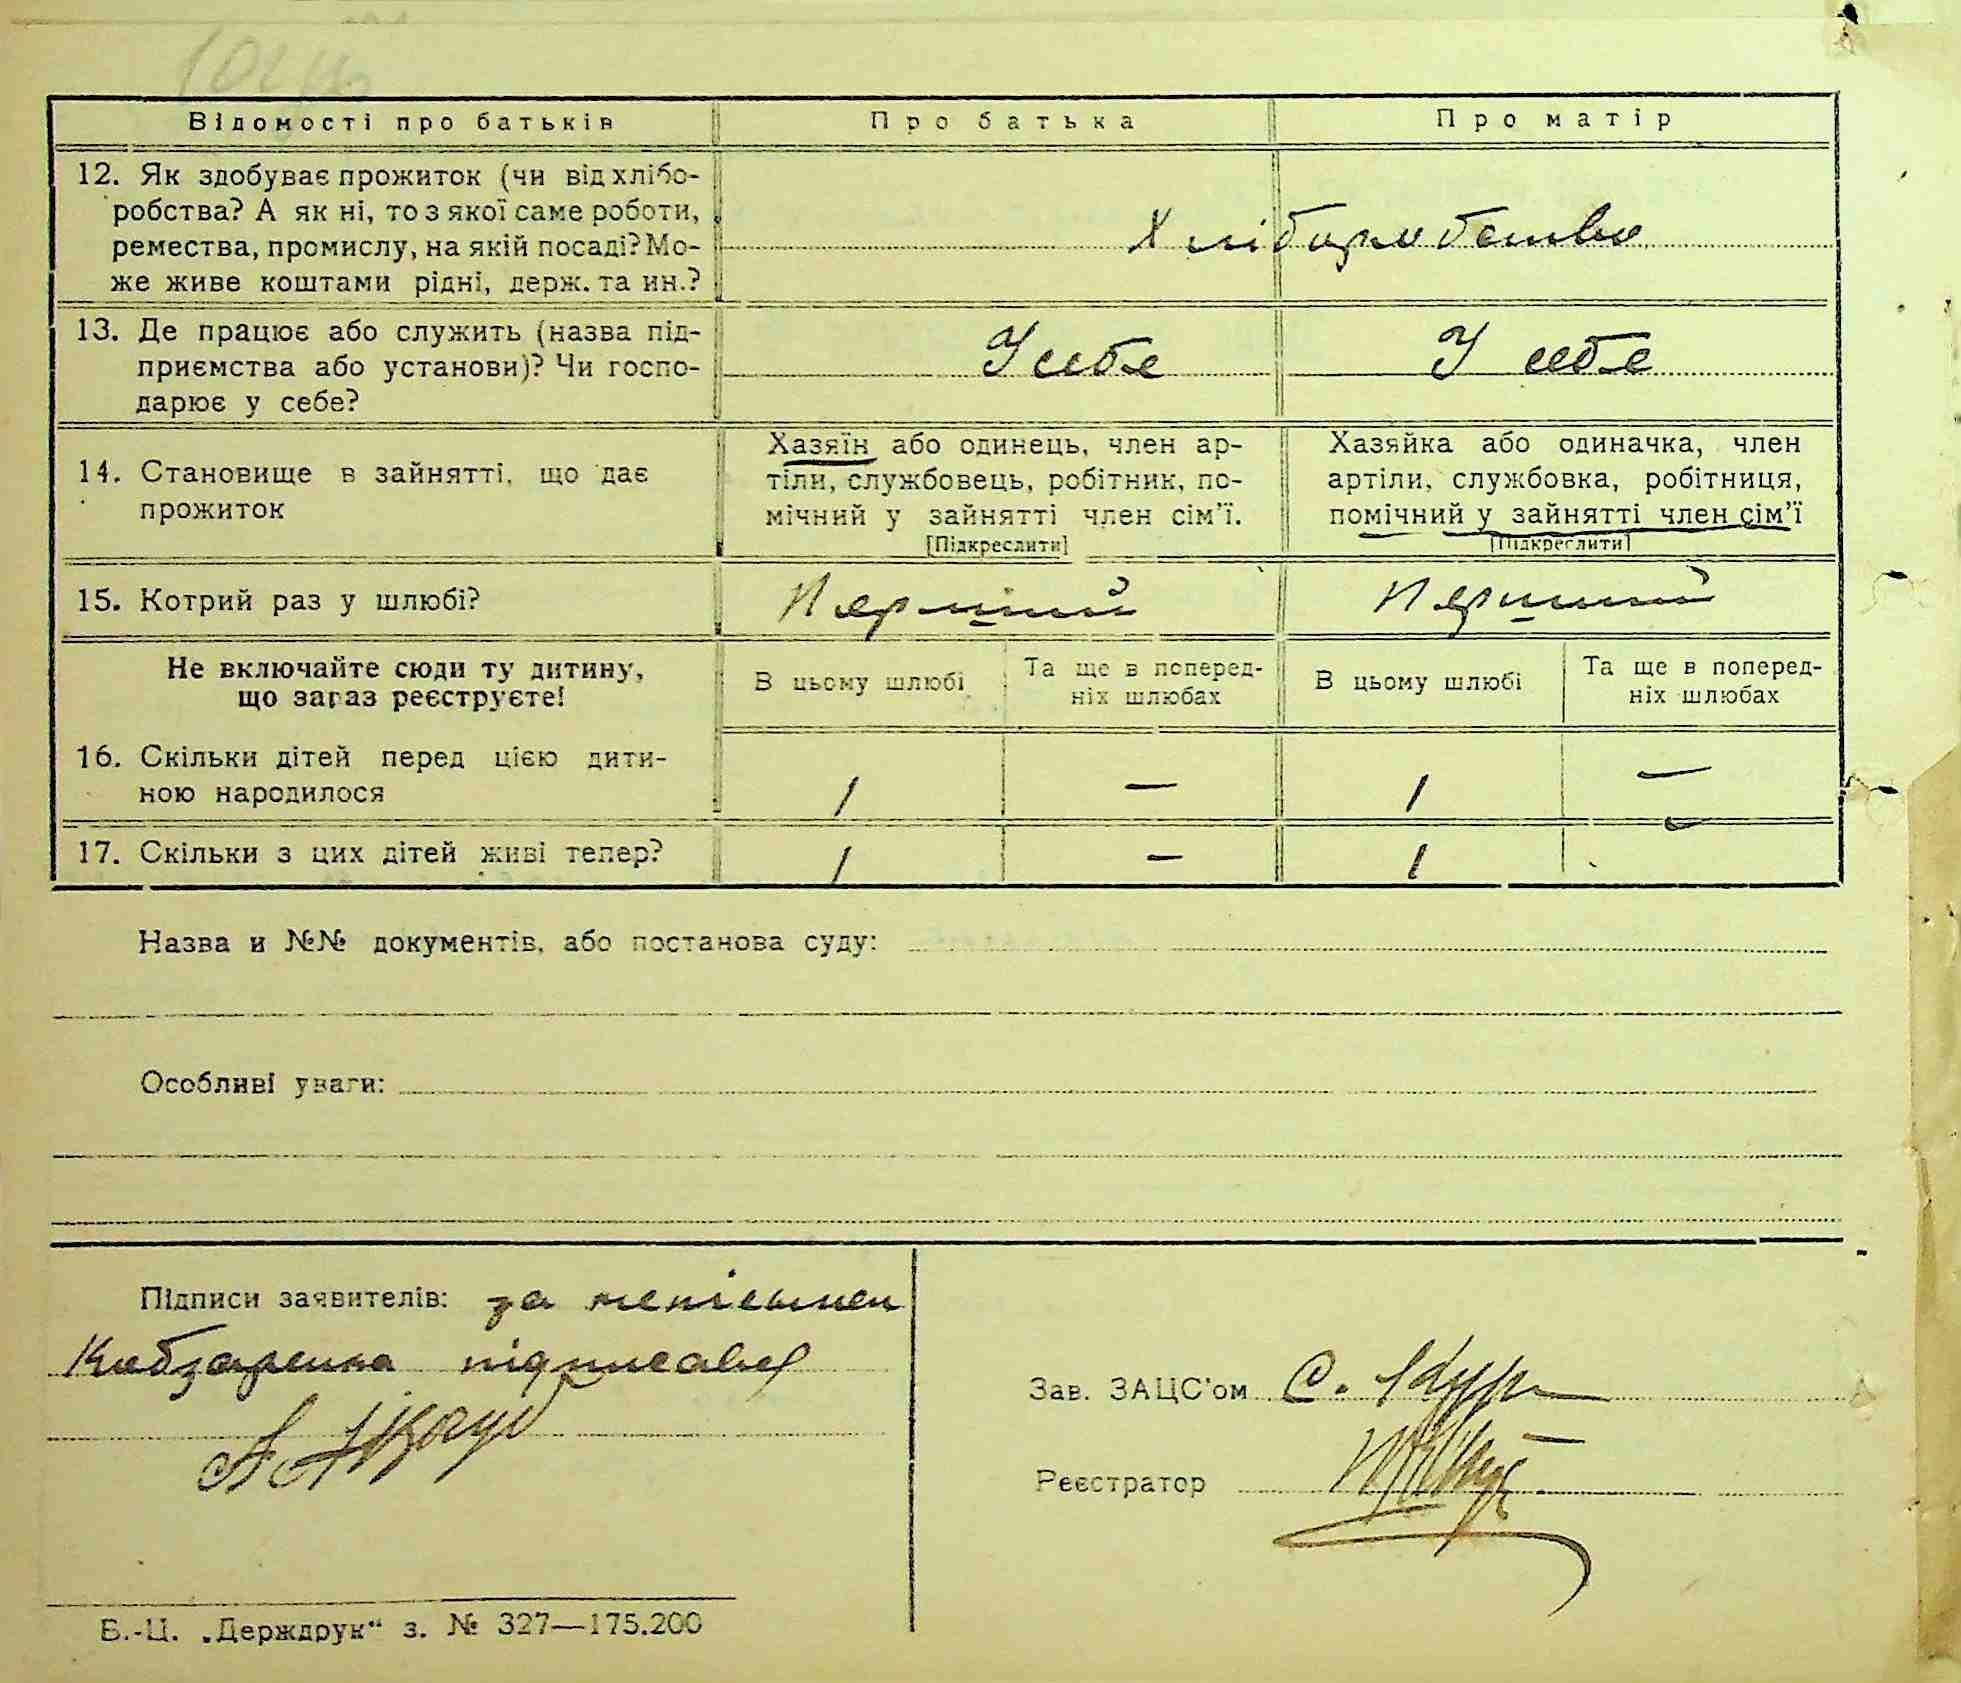 Відомості про батьків Про батька Про матір
12. Як здобуває прожиток (чи від хлібо-
робства? А як ні, то з якої саме роботи,
ремества, промислу, на якій посаді? Мо-
же живе коштами рідні, держ. та ин.?
Хліборобство
13. Де працює або служить (назва під-
приємства або установи)? Чи госпо-
дарює у себе?
У себе У себе
14. Становище в зайнятті, що дає
прожиток
Хазяїн або одинець, член ар-
тіли, службовець, робітник, по-
мічний у зайнятті член сім'ї.
[Підкреслити]
Хазяйка або одиначка, член
артіли, службовка, робітниця,
помічний у зайнятті член сім'ї
[Підкреслити]
15. Котрий раз у шлюбі? Перший Перший
Не включайте сюди ту дитину,
що зараз реєструєте!
В цьому шлюбі
Та ще в поперед-
ніх шлюбах
В цьому шлюбі
Та ще в поперед-
ніх шлюбах
16. Скільки дітей перед цією дити-
ною народилося
1 — 1 —
17. Скільки з цих дітей живі тепер? 1 — 1
Назва и №№ документів, або постанова суду:
Особливі уваги:
Підписи заявителів: за неписьмен
Кобзаренка підписавсь
Зав. ЗАЦС'ом С.
Реєстратор
Б.-Ц. „Держдрук“ з. № 327—175.200